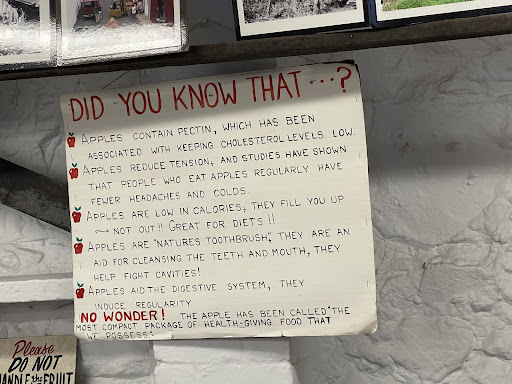 DID YOU KNOW THAT ...?
APPLES CONTAIN PECTIN, WHICH HAS BEEN
ASSOCIATED WITH KEEPING CHOLESTEROL LEVELS LOW.
APPLES REDUCE TENSION, AND STUDIES HAVE SHOWN
THAT PEOPLE WHO EAT APPLES REGULARLY HAVE
FEWER HEADACHES AND COLDS.
APPLES ARE LOW IN CALORIES, THEY FILL YOU UP
~ NOT OUT!! GREAT FOR DIETS!!
APPLES ARE "NATURES TOOTHBRUSH", THEY ARE AN
AID FOR CLEANSING THE TEETH AND MOUTH, THEY
HELP FIGHT CAVITIES!
APPLES AID THE DIGESTIVE SYSTEM, THEY
INDUCE REGULARITY.
NO WONDER! THE APPLE HAS BEEN CALLED "THE
MOST COMPACT PACKAGE OF HEALTH-GIVING FOOD THAT
WE POSSESS!
Please
DO NOT
HANDLE the FRUIT